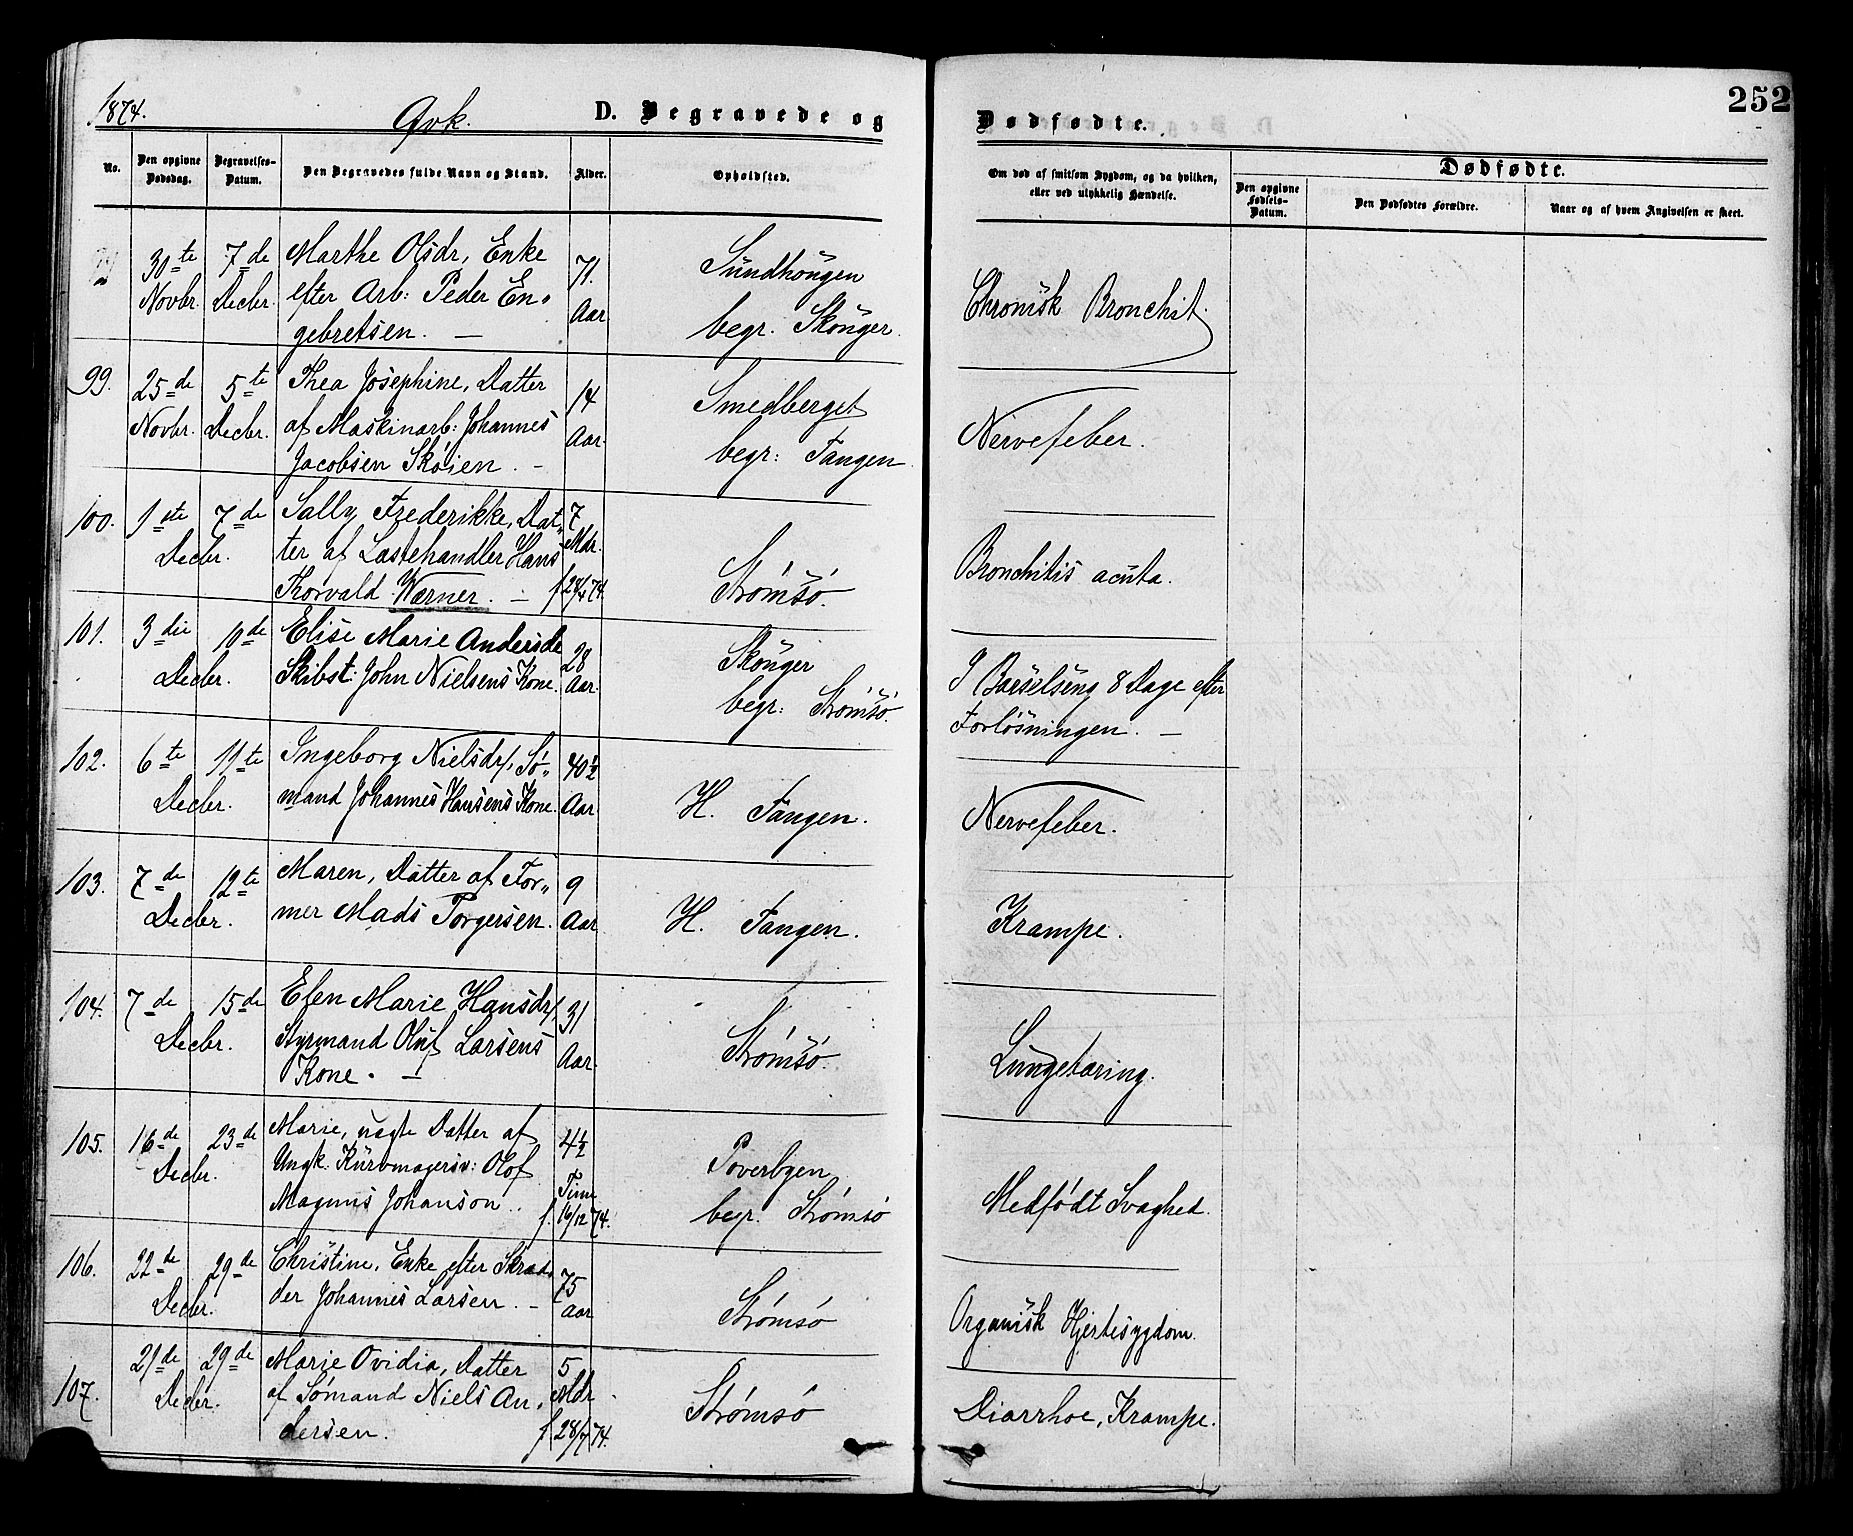 1874.
Qvk.
D. Begravede og
Dødfødte.
252
No.
Den opgivne Dødsdag.
Begravelses-Datum.
Den Begravedes fulde Navn og Stand.
Alder.
Opholdsted.
Om død af smitsom Sygdom, og da hvilken,
eller ved ulykkelig Hændelse.
Dødfødte.
Den opgivne Fødsels-Datum.
Den Dødfødtes Forældre.
Naar og af hvem Angivelsen er skeet.
30te 7de Marthe Olsdr, Enke 71. Sundhougen
Novbr. Decbr. efter Arb: Peder En- Aar begr. Skouger. Chronisk Bronchit.
gebretsen. —
99. 25de 5te Thea Josephine, Datter 14 Smedberget
Novbr. Decbr. af Maskinarb: Johannes Aar. begr: Tangen. Nervefeber.
Jacobsen Skoien. -
100. 1ste 7de Sally Frederikke, Dat- 7
Decbr. ter af Lastehandler Hans Mdr. Strømsø. Bronchitis acuta.
Thorvald Werner. — f 28/4 74.
101. 3die 10de Elise Marie Andersdr 28 Skouger I Barselseng 8 Dage efter
Decbr. Skibst: John Nielsens Kone. Aar. begr: Strømsø. Forløsningen. —
102. 6te 11te Ingeborg Nielsdr, Sø- 40½
Decbr. mand Johannes Hansens Kone. Aar. H. Tangen. Nervefeber.
103. 7de 12te Maren, Datter af For- 9
Decbr. mer Mads Torgersen. Aar H. Tangen. Krampe.
104. 7de 15de Elen Marie Hansdr, 31
Decbr. Styrmand Oluf Larsens Aar. Strømsø. Lungetæring.
Kone. —
105. 16de 23de Marie, uægte Datter af 4½ Poverbyen,
Decbr. Ungk: Kurvmagersv: Olof Time begr. Strømsø Medfødt Svaghed.
Magnus Johanson. f. 16/12 74.
106. 22de 29de Christine, Enke efter Skræd- 75
Decbr. der Johannes Larsen. - Aar Strømsø Organisk Hjertesygdom.
21de 29de Marie Ovidia, Datter 5
107. Decbr. af Sømand Niels An- Mdr Strømsø Diarrhoe, Krampe.
dersen. f 28/7 74.